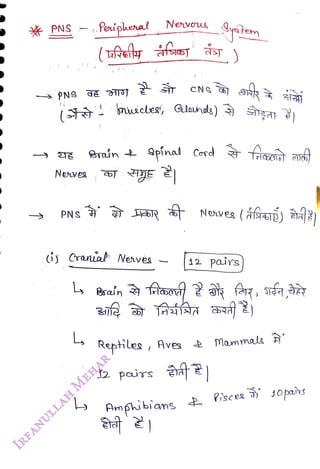 * PNS - Peripheral Nervous System
( परिधीय तंत्रिका तंत्र )
→ PNS वह भाग है जो CNS को शरीर के अंगों
( जैसे - Muscles, Glands) से जोड़ता है|
→ यह Brain & Spinal Cord से निकलने वाली
Nerves का समूह है|
→ PNS में दो प्रकार की Nerves (तंत्रिकाएँ) होती है|
(i) Cranial Nerves - 12 pairs
↳ Brain से निकलती है और सिर, गर्दन, चेहरे
आदि को नियंत्रित करती है|
↳ Reptiles, Aves & Mammals में
12 pairs होती है|
↳ Amphibians & Pisces में 10 pairs
होती है|
IRFANULLAH MEHAR